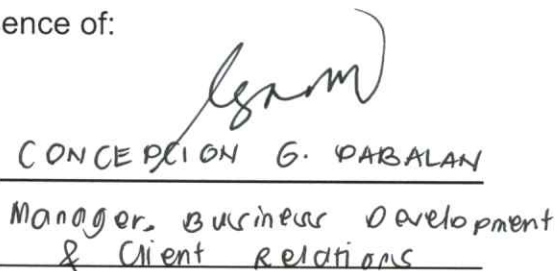 ence of:
CONCEPCION G. PABALAN
Manager, Business Development
& Client Relations